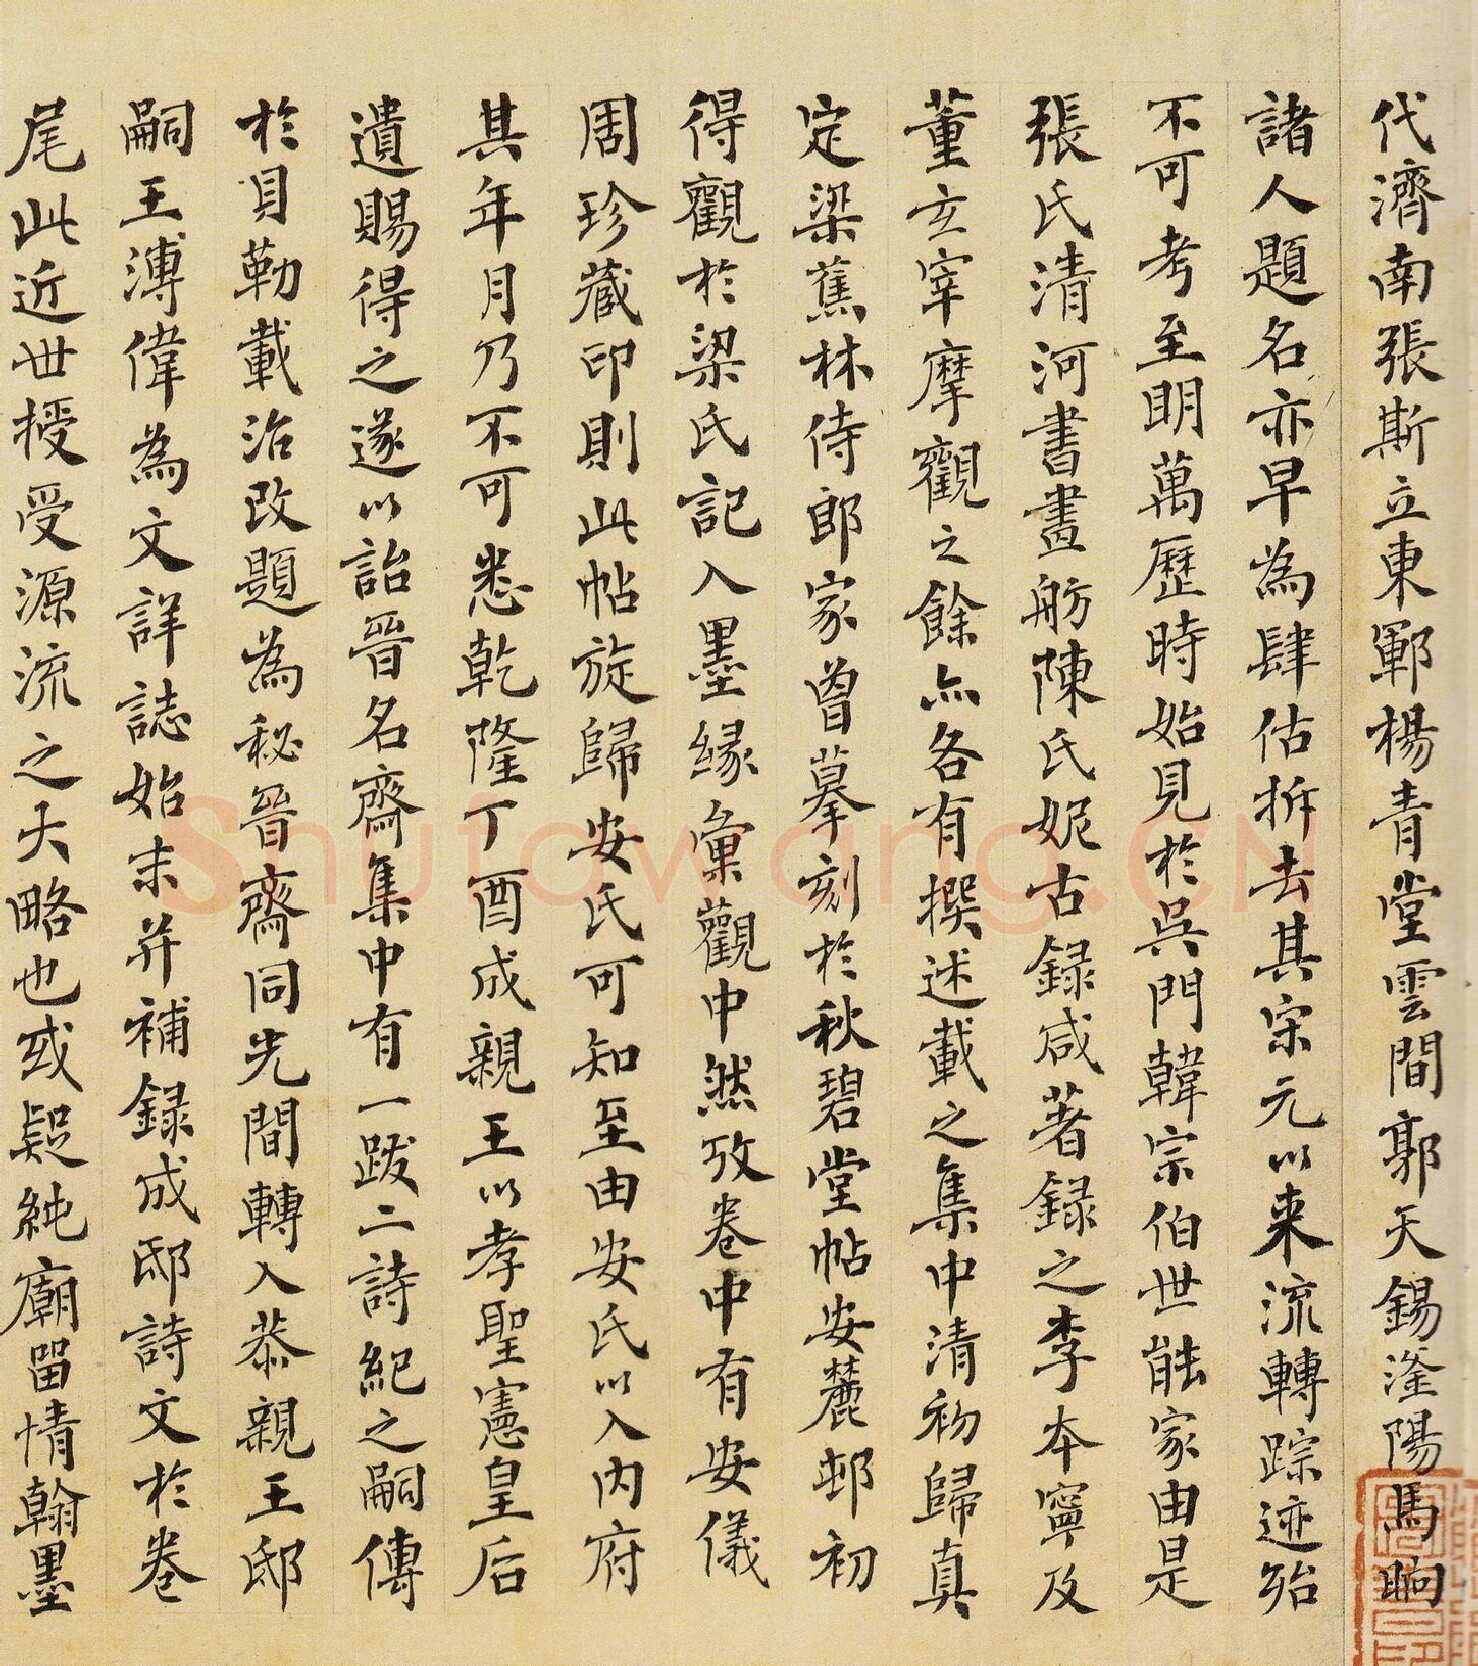 代濟南張斯立東鄆楊青堂雲間郭天錫滏陽馬昫
諸人題名亦早為肆估拆去其宋元以来流轉踪迹殆
不可考至明萬歷時始見於吳門韓宗伯世能家由是
張氏清河書畫舫陳氏妮古録咸著録之李本寧及
董玄宰摩觀之餘亦各有撰述載之集中清初歸真
定梁蕉林侍郎家曾摹刻於秋碧堂帖安麓邨初
得觀於梁氏記入墨緣彙觀中然攷卷中有安儀
周珍藏印則此帖旋歸安氏可知至由安氏以入內府
其年月乃不可悉乾隆丁酉成親王以孝聖憲皇后
遺賜得之遂以詒晉名齋集中有一跋二詩紀之嗣傳
於貝勒載治改題為秘晉齋同光間轉入恭親王邸
嗣王溥偉為文詳誌始末并補録成邸詩文於卷
尾此近世授受源流之大略也或疑純廟留情翰墨
Shufawang.CN